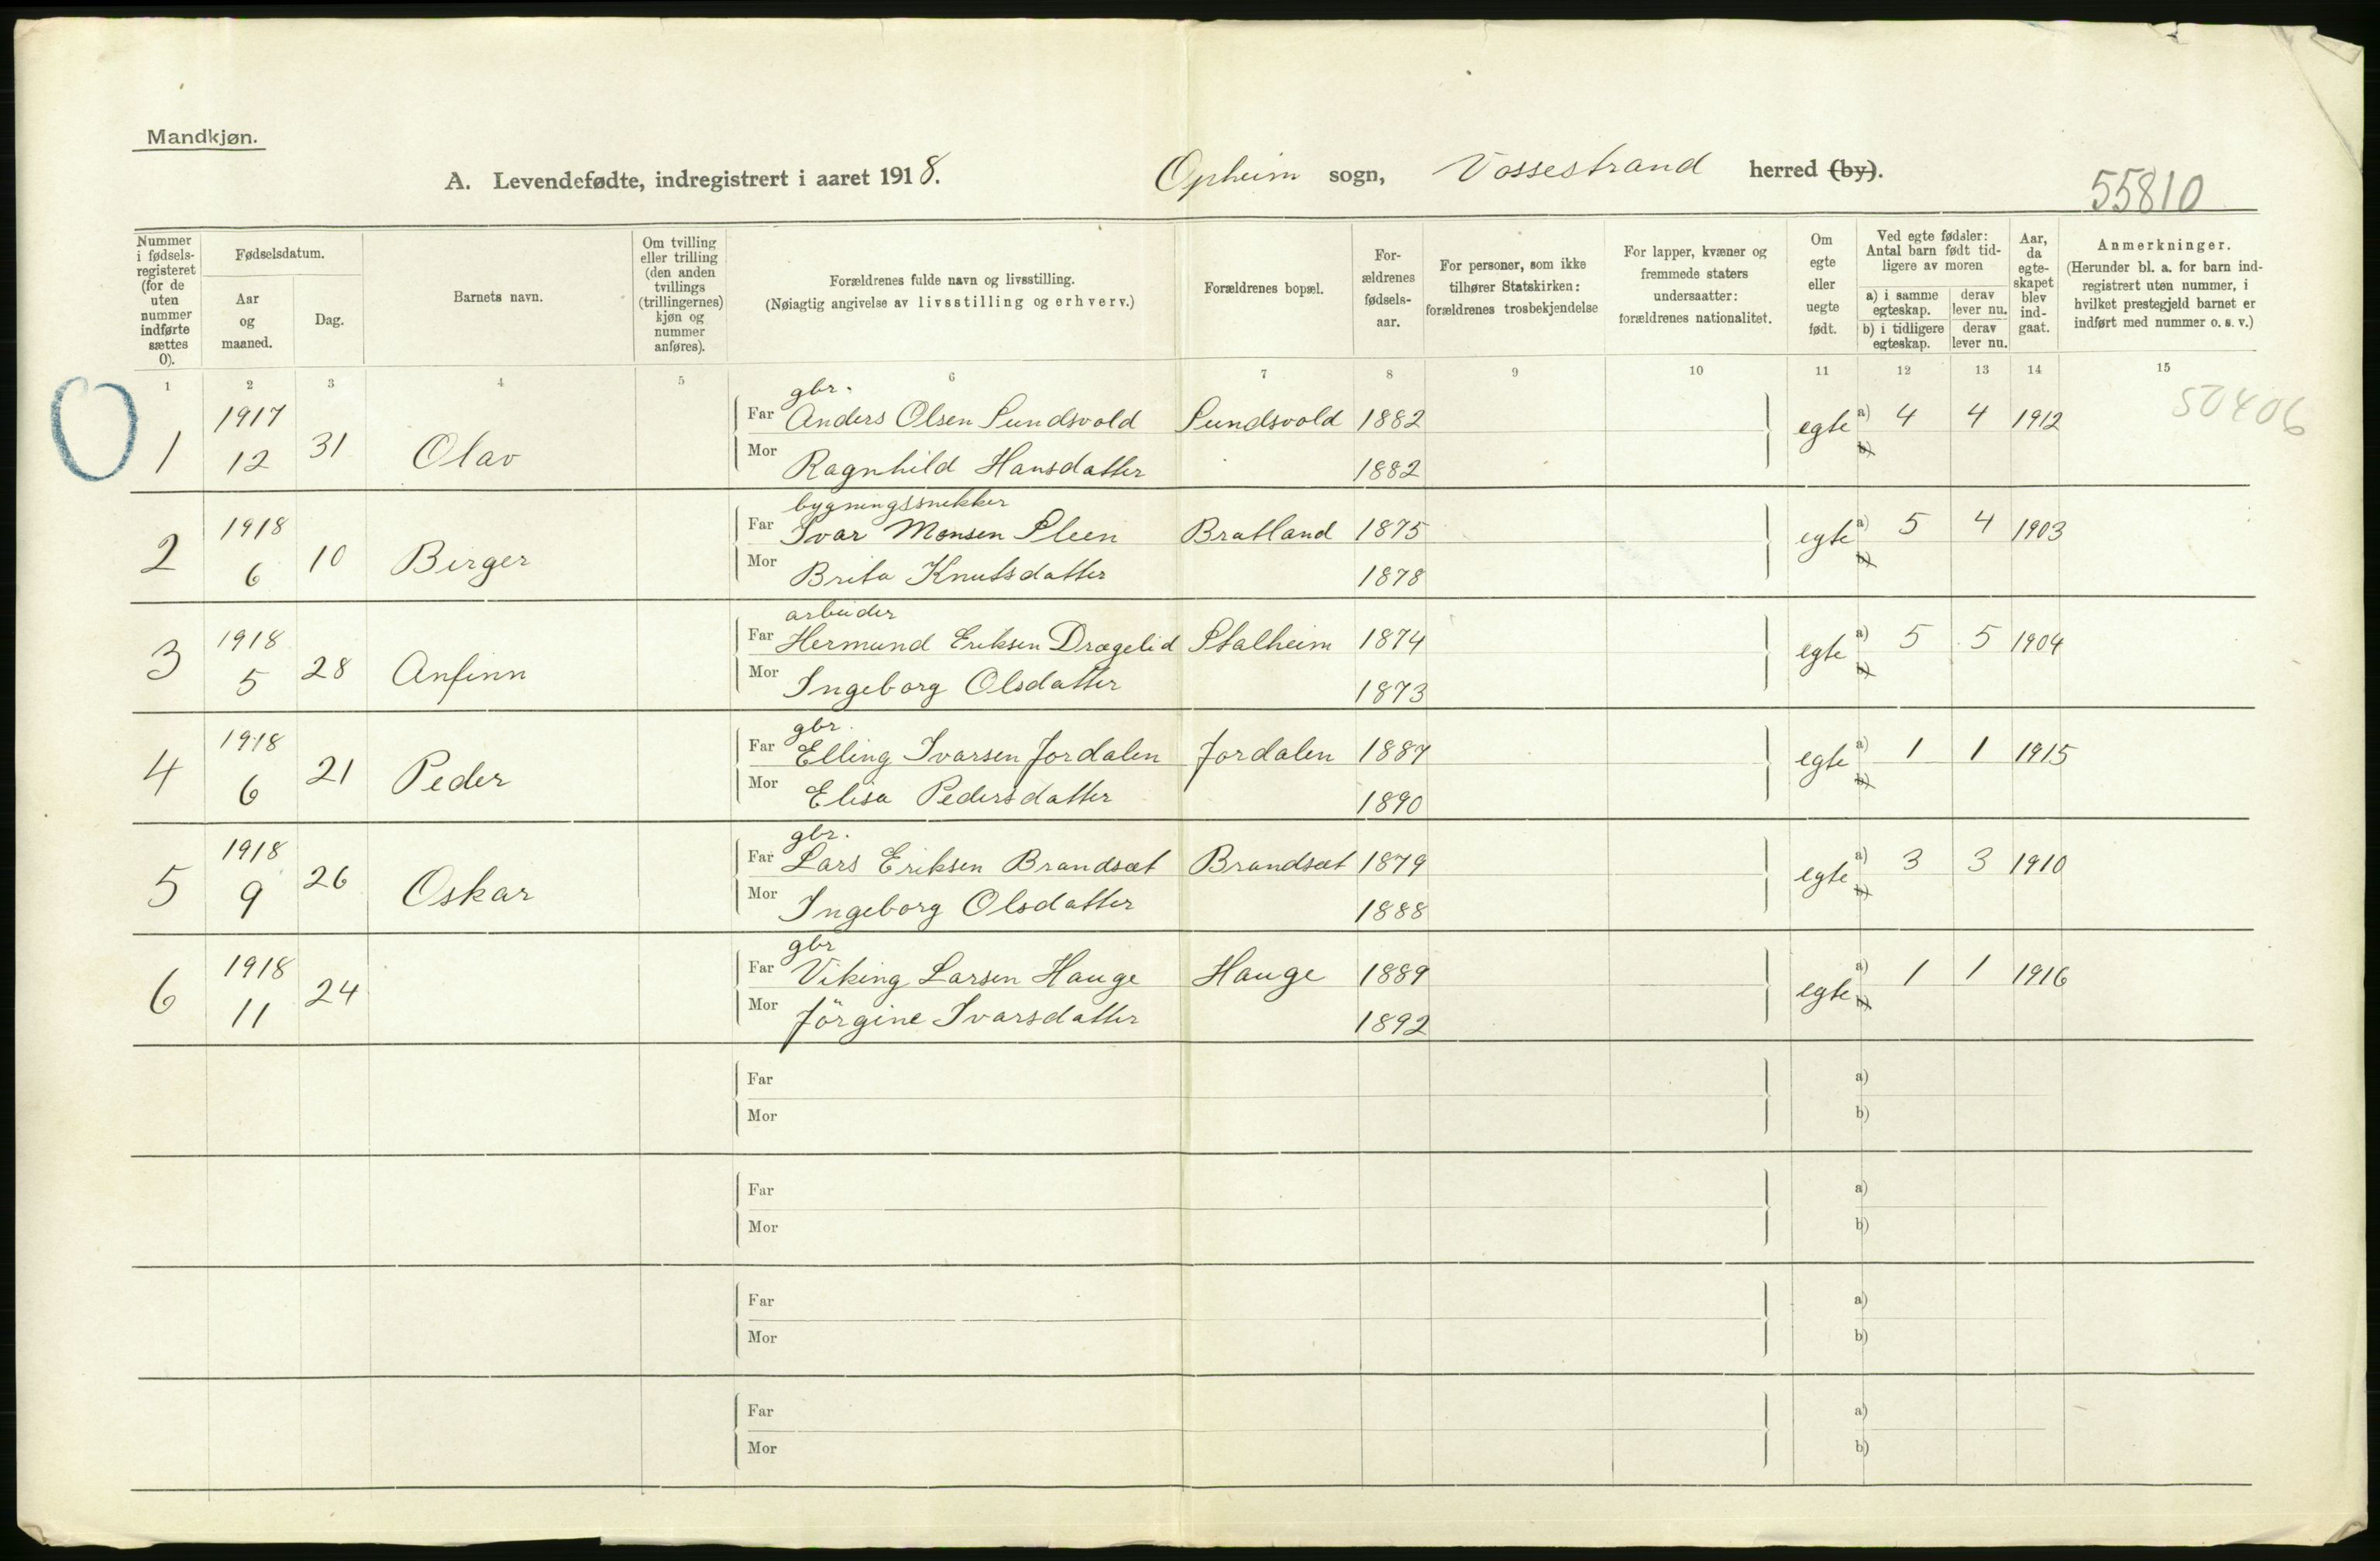 Mandkjøn.
A. Levendefødte, indregistrert i aaret 1918.
Opheim sogn, Vossestrand herred (by).
55810
Nummer i fødselsregisteret (for de uten nummer indførte sættes 0).
Fødselsdatum.
Aar og maaned.
Dag.
Barnets navn.
Om tvilling eller trilling (den anden tvillings (trillingernes) kjøn og nummer anføres).
Forældrenes fulde navn og livsstilling.
(Nøiagtig angivelse av livsstilling og erhverv.)
Forældrenes bopæl.
Forældrenes fødselsaar.
For personer, som ikke tilhører Statskirken: forældrenes trosbekjendelse
For lapper, kvæner og fremmede staters undersaatter: forældrenes nationalitet.
Om egte eller uegte født.
Ved egte fødsler: Antal barn født tidligere av moren
a) i samme egteskap. derav lever nu.
b) i tidligere egteskap. derav lever nu.
Aar, da egteskapet blev indgaat.
Anmerkninger.
(Herunder bl. a. for barn indregistrert uten nummer, i hvilket prestegjeld barnet er indført med nummer o. s. v.)
1 2 3 4 5 6 7 8 9 10 11 12 13 14 15
0
50406
gbr.
1 1917 12 31 Olav Far Anders Olsen Sundsvold Sundsvold 1882 egte a) 4 4 1912
Mor Ragnhild Hansdatter 1882 b)
bygningssnekker
2 1918 6 10 Birger Far Ivar Monsen Sleen Bratland 1875 egte a) 5 4 1903
Mor Brita Knutsdatter 1878 b)
arbeider
3 1918 5 28 Anfinn Far Hermund Eriksen Drægelid Stalheim 1874 egte a) 5 5 1904
Mor Ingeborg Olsdatter 1873 b)
gbr.
4 1918 6 21 Peder Far Elling Ivarsen Jordalen Jordalen 1887 egte a) 1 1 1915
Mor Elisa Pedersdatter 1890 b)
gbr.
5 1918 9 26 Oskar Far Lars Eriksen Brandsæt Brandsæt 1879 egte a) 3 3 1910
Mor Ingeborg Olsdatter 1888 b)
gbr
6 1918 11 24 Far Viking Larsen Hauge Hauge 1889 egte a) 1 1 1916
Mor Jörgine Ivarsdatter 1892 b)
Far a)
Mor b)
Far a)
Mor b)
Far a)
Mor b)
Far a)
Mor b)